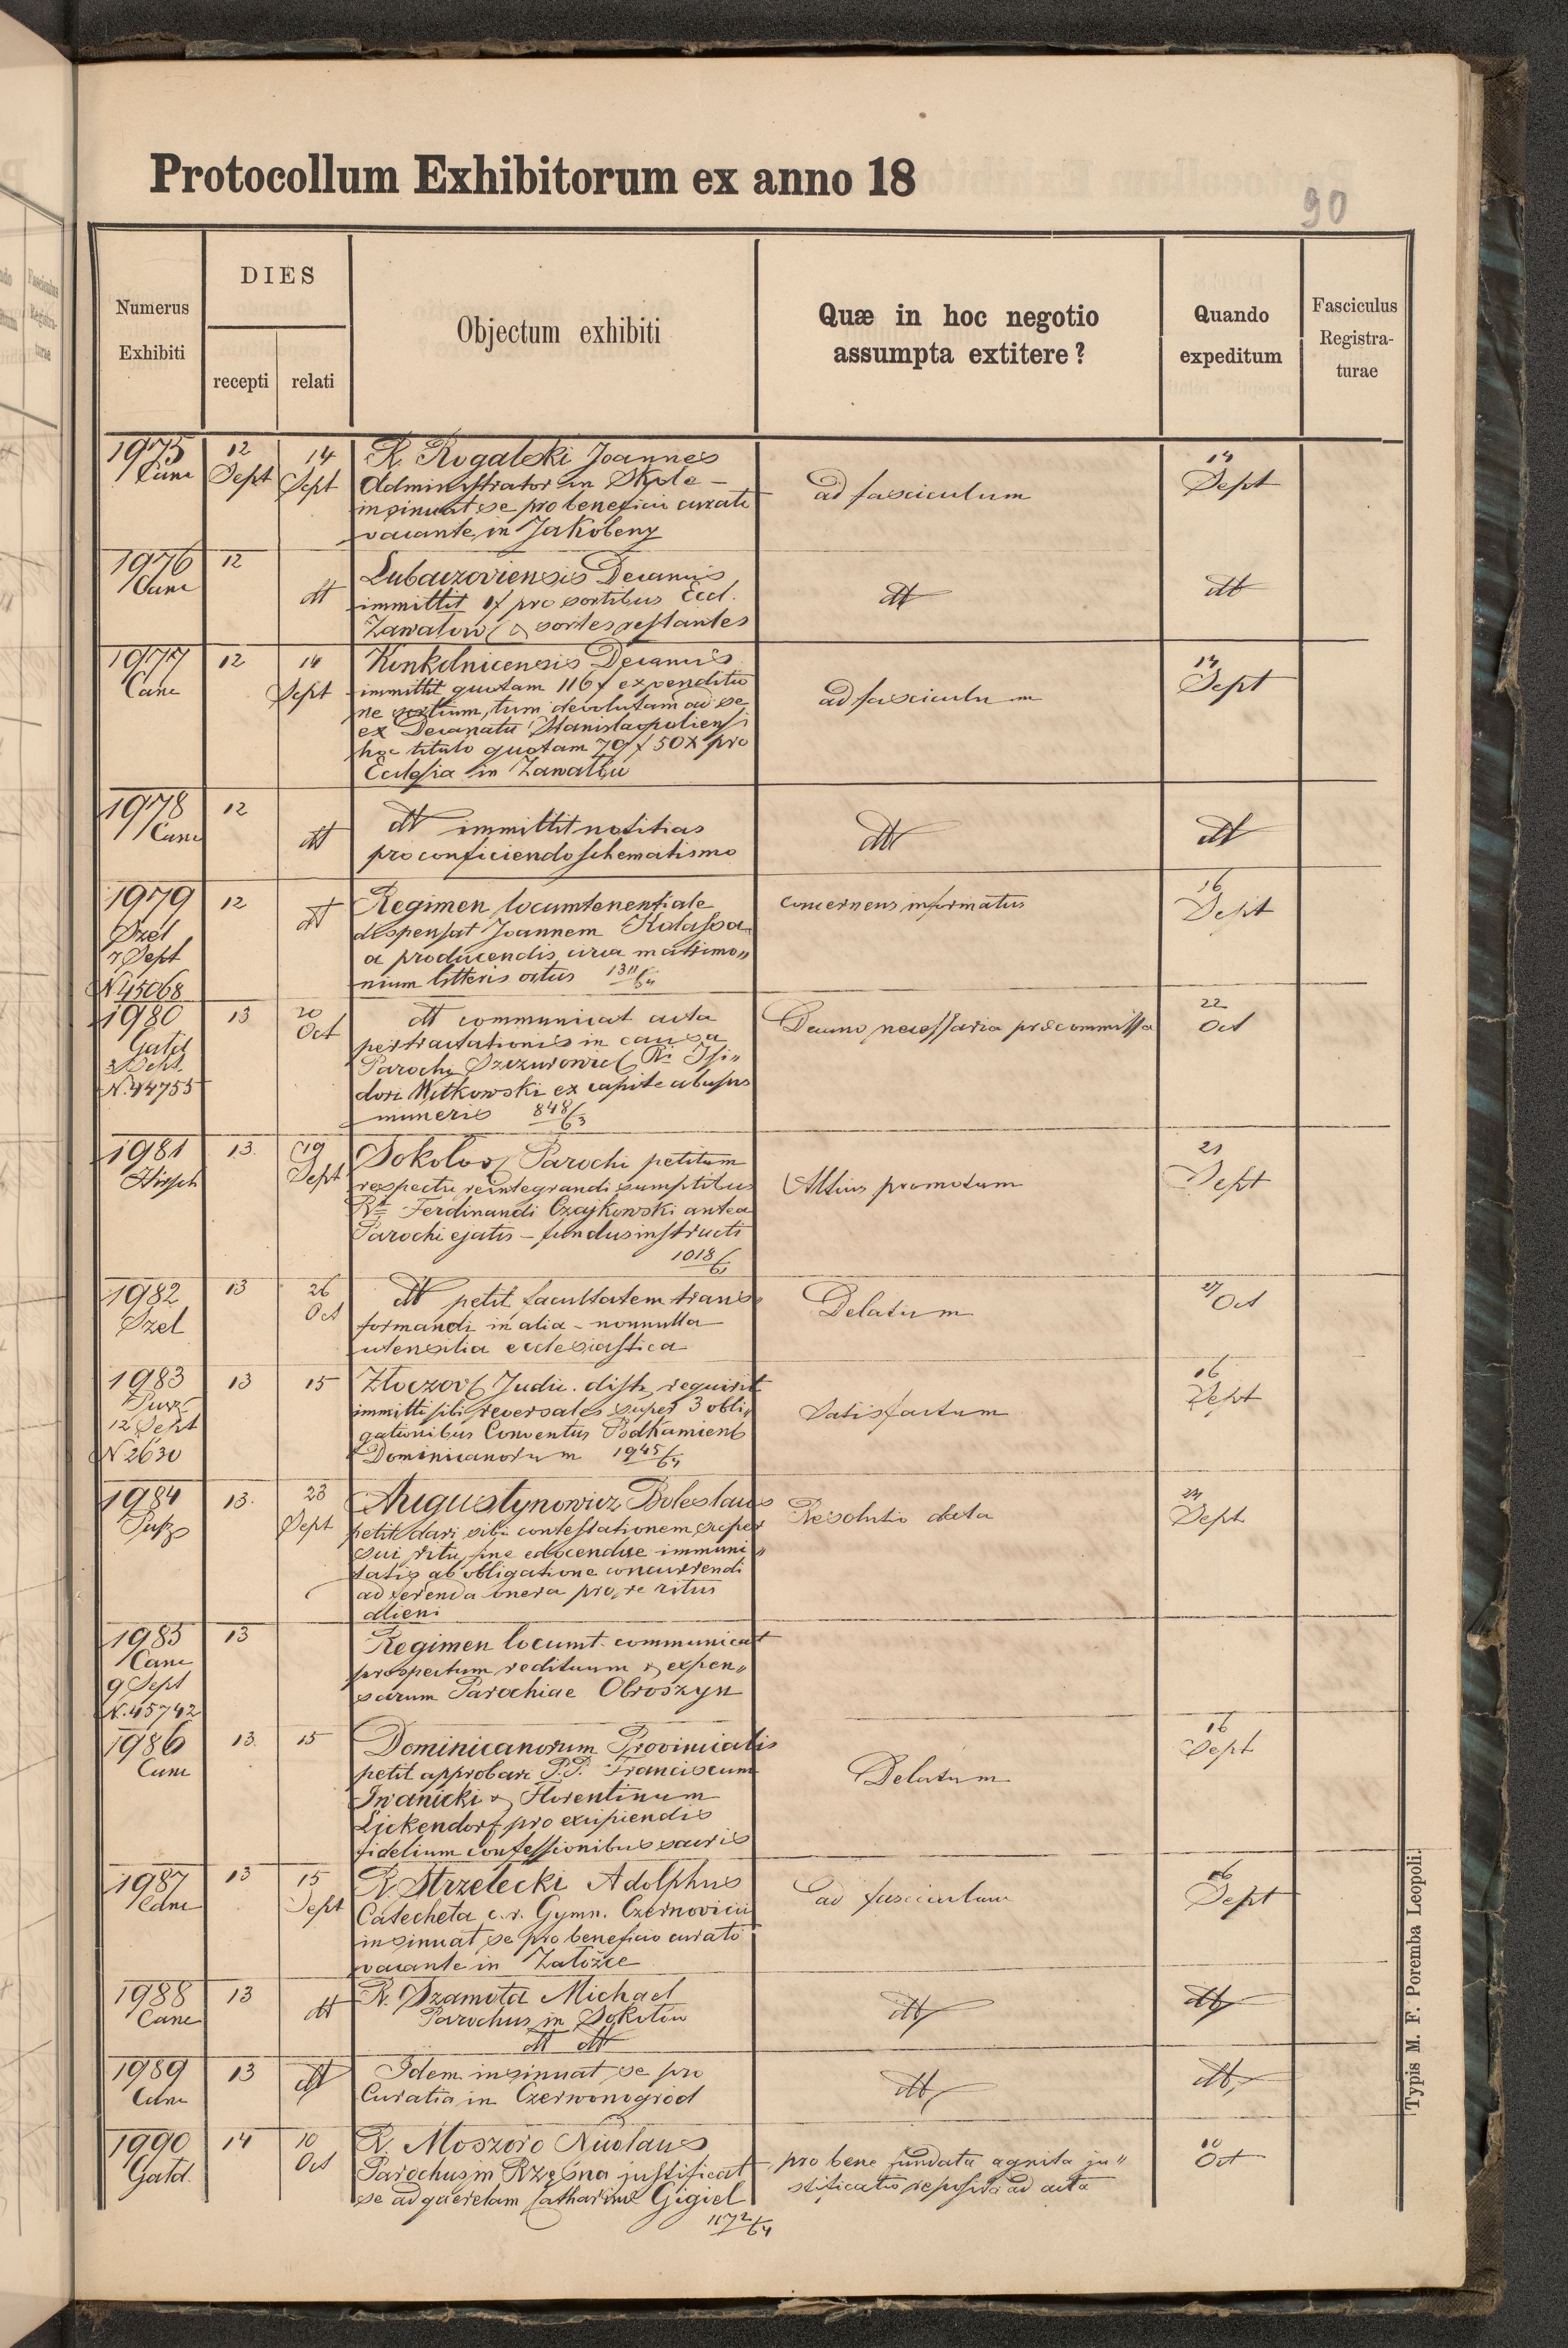 Protocollum Exhibitorum ex anno 18
90
Numerus Exhibiti
DIES
recepti
relati
Objectum exhibiti
Quæ in hoc negotio
assumpta extitere?
Quando
expeditum
Fasciculus
Registra-
turae
1975 12 14 R. Rogalski Joannes 14
Canc Sept Sept Administrator in Skole – ad fasciculum Sept
insinuat se pro beneficii curati
vacante in Jakobeny
1976 12 Lubaczoviensis Decanus
Canc dt immittit 1f pro sortibus Eccl. dt dt
Zawatow & sortes restantes
1977 12 14 Kunkolnicensis Decanus 14
Canc Sept immittit quotam 116f expenditio ad fasciculum Sept
ne sortium, tum devolutam ad se
ex Decanatu Stanislaopoliensi
hoc titulo quotam 70f 50x pro
Ecclesia in Zawatow
1978 12 dt immittit notitias dt dt
Canc dt pro conficiendo schematismo
1979 12 dt Regimen locumtenentiale concernens informatus 16
Szel dispensat Joannem Kolassa Sept
7 Sept a producendis circa matrimo„
N 45068 nium litteris ortus
1980 13 20 dt communicat acta Decano necessaria præcommissa 22
Oct pertractationis in causa Oct
3 Sept. Parochi Szczurowic Ri Isi„
N. 44755 dori Witkowski ex capite abusus
muneris 848/63
1981 13. 19 Sokolov Parochi petitum 21
Hirsch Sept respectu reintegrandi sumptibus Altius promotum Sept
Ri Ferdinandi Czajkowski antea
Parochi ejatis – fundus instructi
1018/61
1982 13 26 dt petit facultatem trans„ Delatum 27
Szel Oct formandi in alia – nonnulla Oct
utensilia ecclesiastica
1983 13 15 Złoczov Judic. distr. requirit 16
immitti sibi reversales super 3 obli„ Satisfactum Sept
12 Sept gationibus Conventus Podkamien
N 2630 Dominicanorum 1945/64
1984 13. 23 Augustynowicz Boleslaus Resolutio data 24
Sept petit dari sibi contestationem super Sept
sui ritu, fine edocendae immuni„
tatis ab obligatione concurrendi
ad ferenda onera pro re ritus
alieni
1985 13 Regimen locumt. communicat
Canc prospectum redituum & expen„
9 Sept sarum Parochiae Obroszyn
N. 45742
1986 13. 15 Dominicanorum Provincialis 16
Canc petit approbari P.P. Franciscum Delatum Sept
Iwanicki & Florentinum
Lickendorf pro excipiendis
fidelium confessionibus sacris
1987 13 15 R. Strzelecki Adolphus 16
Canc Sept Catecheta c.r. Gymn. Czernovicii ad fasciculum Sept
insinuat se pro beneficio curato
vacante in Załośce
1988 13 dt R. Szamota Michael dt dt
Canc Parochus in Sokołow
dt dt
1989 13 dt Idem insinuat se pro dt dt
Canc Curatia in Czerwonogród
1990 14 10 R. Moszoro Nicolaus 10
Oct Parochus in Rzęsna justificat pro bene fundata agnita ju„ Oct
se ad querelam Catharinae Gigiel stificatio reposita ad acta
1172/64
Typis M. F. Poremba Leopoli.